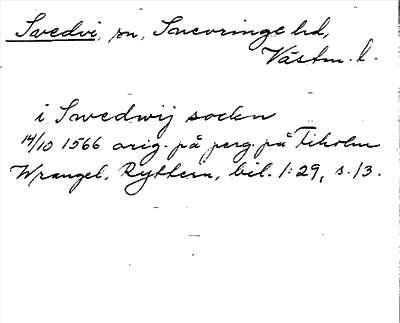 Svedvi, sn, Snevringe hd,
Västm. l.
i Swedwij sockn
14/10 1566 orig. på perg. på Tiholm
Wrangel, Ryttern, bil. 1:29, s. 13.